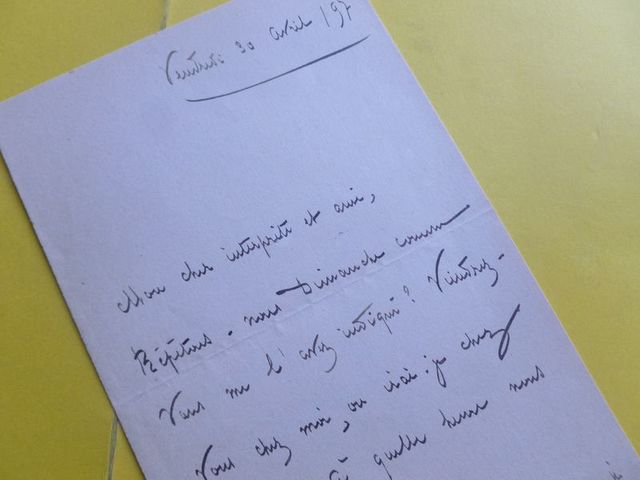 Vendredi 30 avril 97
Mon cher interprète et ami,
Répétons-nous Dimanche comme
Vous me l'avez indiqué? Viendrez-
Vous chez moi, ou irai-je chez
à quelle heure nous